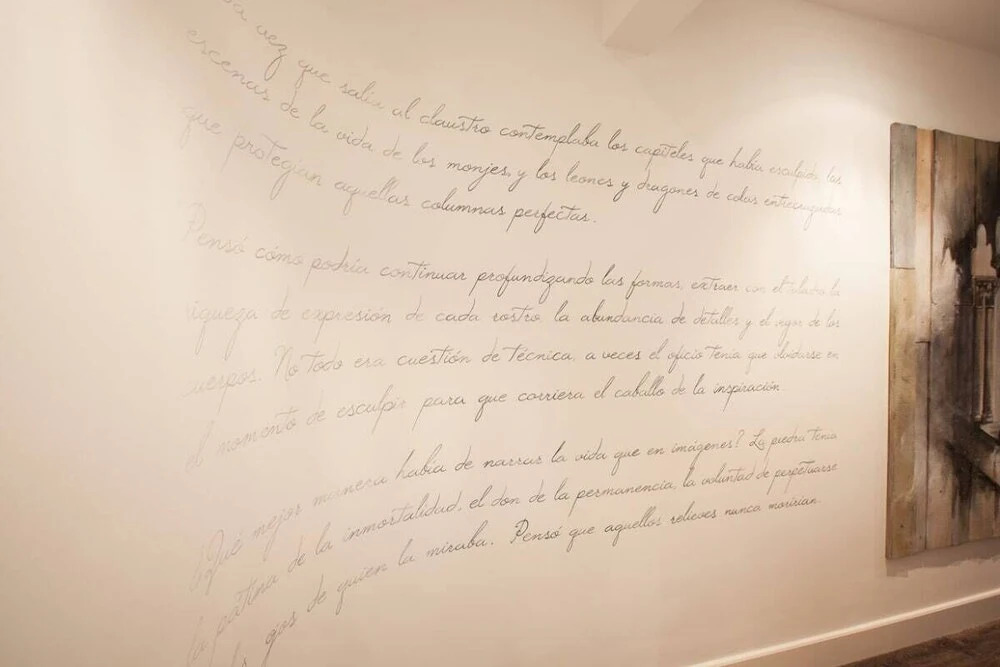 vez que salía al claustro contemplaba los capiteles que había esculpido, las
escenas de la vida de los monjes, y los leones y dragones de colas entrecruzadas
que protegían aquellas columnas perfectas.
Pensó cómo podría continuar profundizando las formas, extraer con el taladro la
riqueza de expresión de cada rostro, la abundancia de detalles y el vigor de los
cuerpos. No todo era cuestión de técnica, a veces el oficio tenía que olvidarse en
el momento de esculpir para que corriera el caballo de la inspiración.
¿Qué mejor manera había de narrar la vida que en imágenes? La piedra tenía
la pátina de la inmortalidad, el don de la permanencia, la voluntad de perpetuarse
ojos de quien la miraba. Pensó que aquellos relieves nunca morirían.